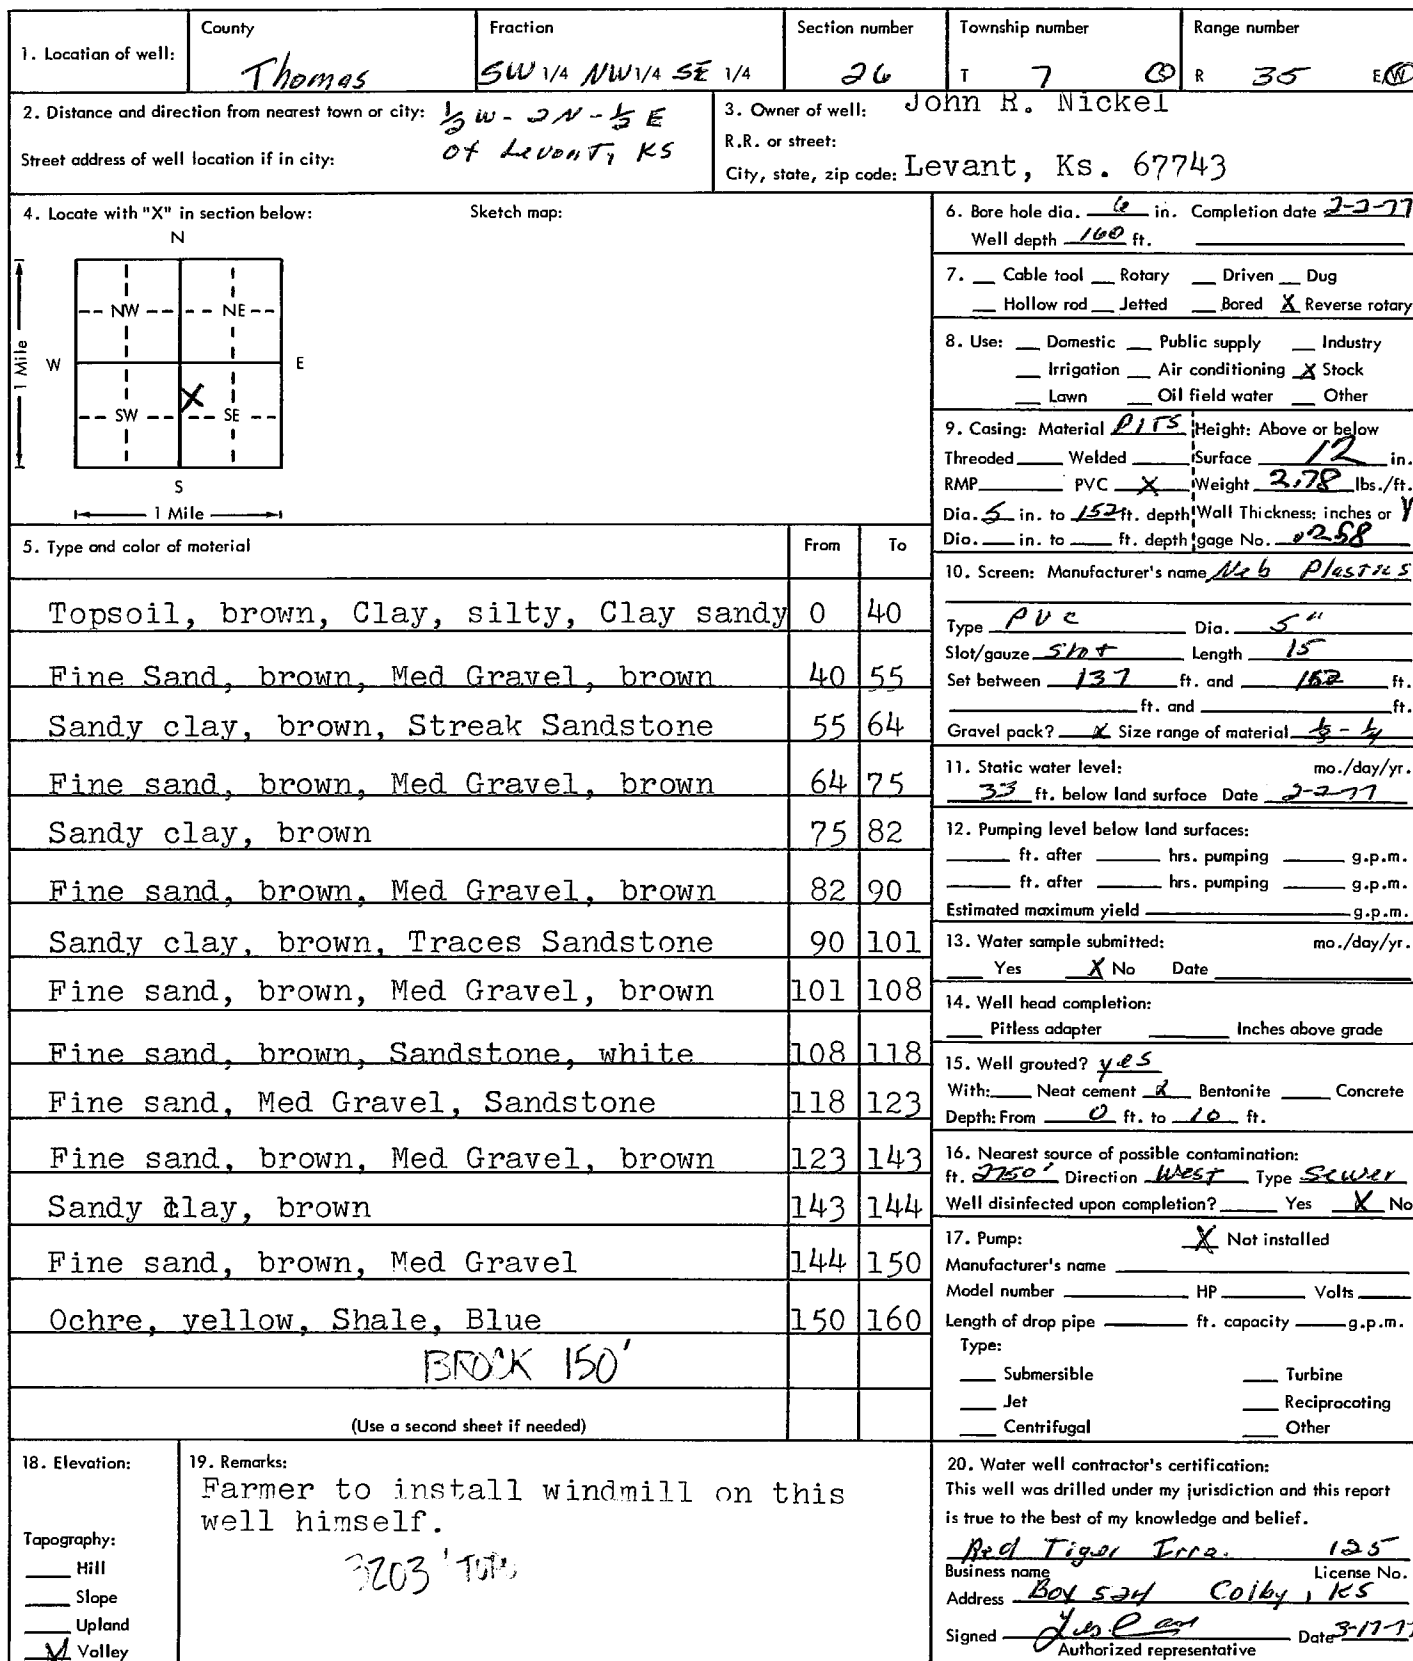 1. Location of well:
County
Thomas
Fraction
SW 1/4 NW 1/4 SE 1/4
Section number
26
Township number
T 7 S
Range number
R 35 E/W
2. Distance and direction from nearest town or city: 1/2 W - 2 N - 1/2 E
of Levant, KS
Street address of well location if in city:
3. Owner of well: John R. Nickel
R.R. or street:
City, state, zip code: Levant, Ks. 67743
4. Locate with "X" in section below:
Sketch map:
N
NW NE
W E
X
SW SE
S
1 Mile
1 Mile
5. Type and color of material From To
Topsoil, brown, Clay, silty, Clay sandy 0 40
Fine Sand, brown, Med Gravel, brown 40 55
Sandy clay, brown, Streak Sandstone 55 64
Fine sand, brown, Med Gravel, brown 64 75
Sandy clay, brown 75 82
Fine sand, brown, Med Gravel, brown 82 90
Sandy clay, brown, Traces Sandstone 90 101
Fine sand, brown, Med Gravel, brown 101 108
Fine sand, brown, Sandstone, white 108 118
Fine sand, Med Gravel, Sandstone 118 123
Fine sand, brown, Med Gravel, brown 123 143
Sandy clay, brown 143 144
Fine sand, brown, Med Gravel 144 150
Ochre, yellow, Shale, Blue 150 160
BROCK 150'
(Use a second sheet if needed)
6. Bore hole dia. 6 in. Completion date 2-2-77
Well depth 160 ft.
7. Cable tool Rotary Driven Dug
Hollow rod Jetted Bored X Reverse rotary
8. Use: Domestic Public supply Industry
Irrigation Air conditioning X Stock
Lawn Oil field water Other
9. Casing: Material Height: Above or below
Threaded Welded Surface 12 in.
RMP PVC X Weight 2.78 lbs./ft.
Dia. 5 in. to 152 ft. depth Wall Thickness: inches or
Dia. in. to ft. depth gage No. .258
10. Screen: Manufacturer's name Neb Plastics
Type PVC Dia. 5"
Slot/gauze Slot Length 15
Set between 137 ft. and 152 ft.
ft. and ft.
Gravel pack? X Size range of material 1/8 - 1/4
11. Static water level: mo./day/yr.
33 ft. below land surface Date 2-2-77
12. Pumping level below land surfaces:
ft. after hrs. pumping g.p.m.
ft. after hrs. pumping g.p.m.
Estimated maximum yield g.p.m.
13. Water sample submitted: mo./day/yr.
Yes X No Date
14. Well head completion:
Pitless adapter Inches above grade
15. Well grouted? yes
With: Neat cement X Bentonite Concrete
Depth: From 0 ft. to 10 ft.
16. Nearest source of possible contamination:
ft. 2750' Direction West Type Sewer
Well disinfected upon completion? Yes X No
17. Pump: X Not installed
Manufacturer's name
Model number HP Volts
Length of drop pipe ft. capacity g.p.m.
Type:
Submersible Turbine
Jet Reciprocating
Centrifugal Other
18. Elevation:
Topography:
Hill
Slope
Upland
X Valley
19. Remarks:
Farmer to install windmill on this
well himself.
3203' TOPO
20. Water well contractor's certification:
This well was drilled under my jurisdiction and this report
is true to the best of my knowledge and belief.
Red Tiger Irra. 125
Business name License No.
Address Box 524 Colby, KS
Signed Date 3-17-77
Authorized representative